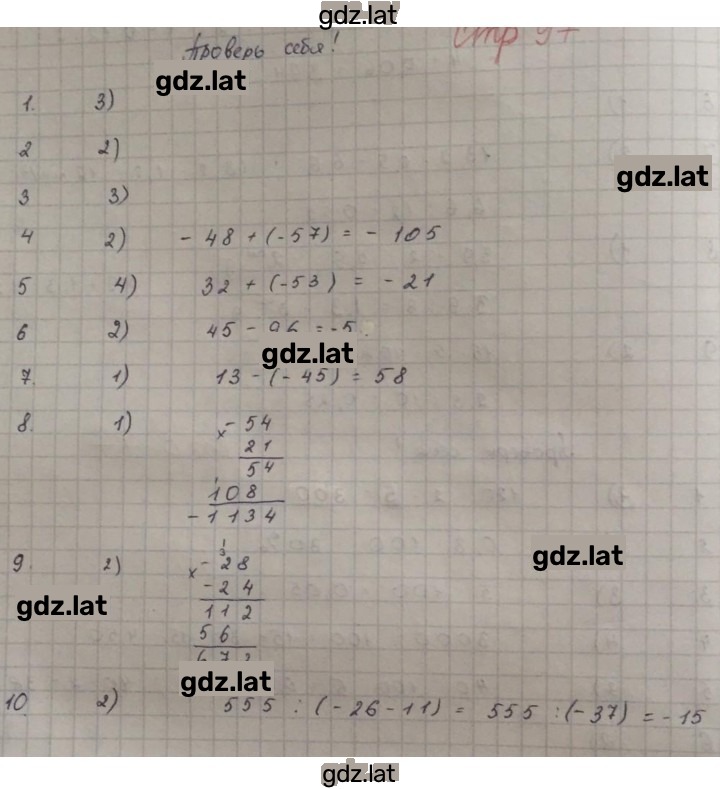 gdz.lat
Проверь себя! Стр 97
gdz.lat
1. 3)
2 2)
gdz.lat
3 3)
4 2) - 48 + (-57) = - 105
5 4) 32 + (-53) = - 21
6 2) 45 -
gdz.lat
7. 1) 13 - (- 45) = 58
8. 1) × - 54
21
54
108
- 1134
gdz.lat
9. 2) × - 28
- 24
gdz.lat
112
56
gdz.lat
10. 2) 555 : (- 26 - 11) = 555 : (- 37) = - 15
gdz.lat